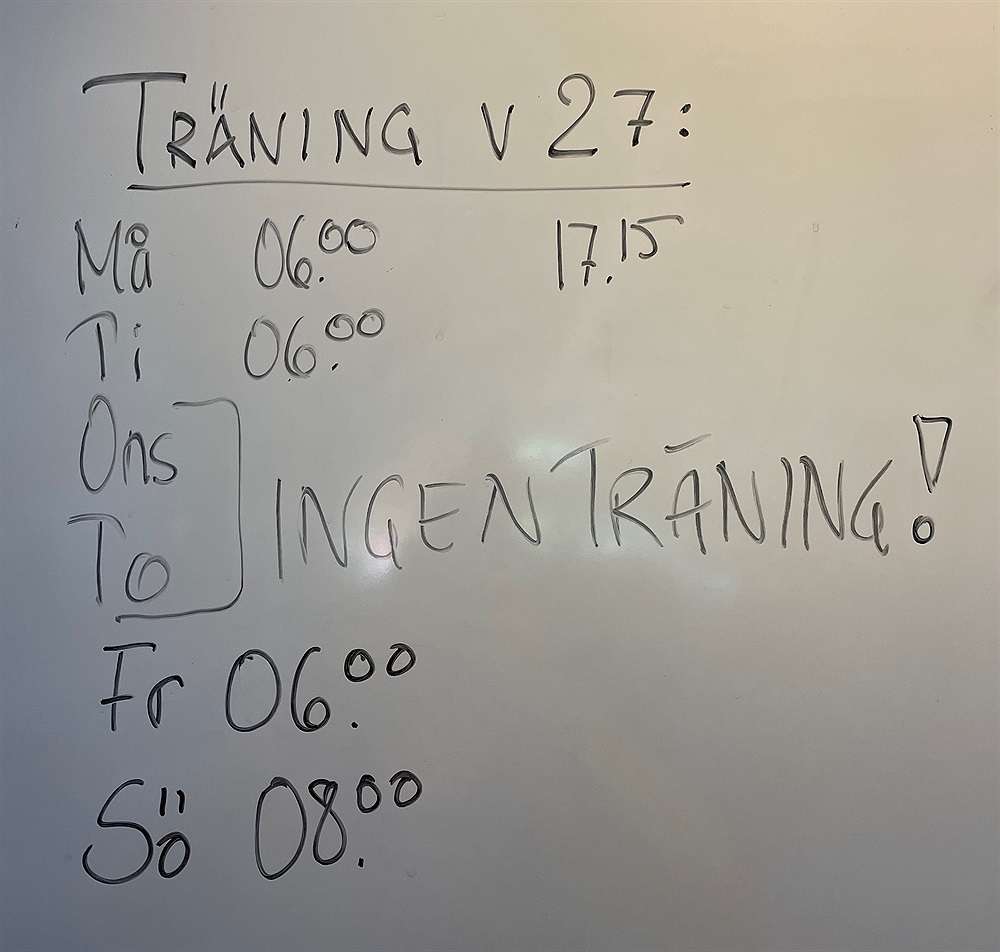 TRÄNING V 27:
Må 06.00 17.15
Ti 06.00
Ons
INGEN TRÄNING!
To
Fr 06.00
Sö 08.00